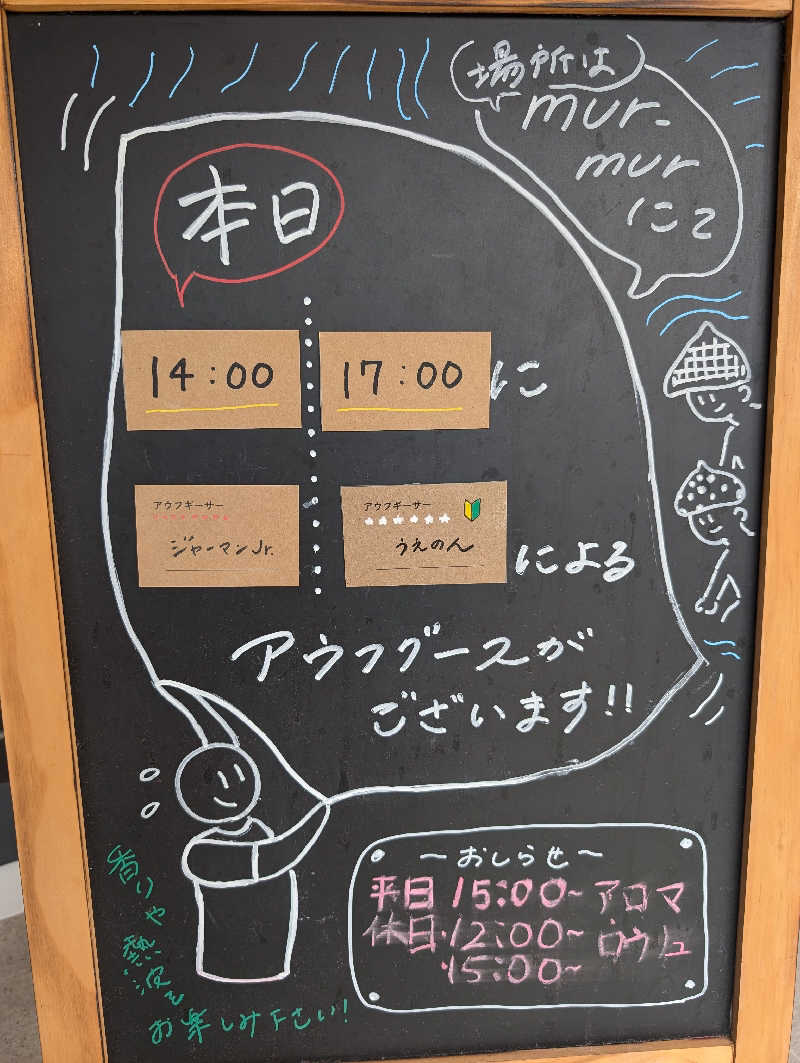 場所は
mur-
mur
にて
本日
14:00 17:00 に
アウフギーサー アウフギーサー
ジャーマンJr. うえのん による
アウフグースが
ございます!!
～おしらせ～
平日 15:00~ アロマ
休日・12:00~ ロウリュ
・15:00~
香りや熱波を
お楽しみ下さい!